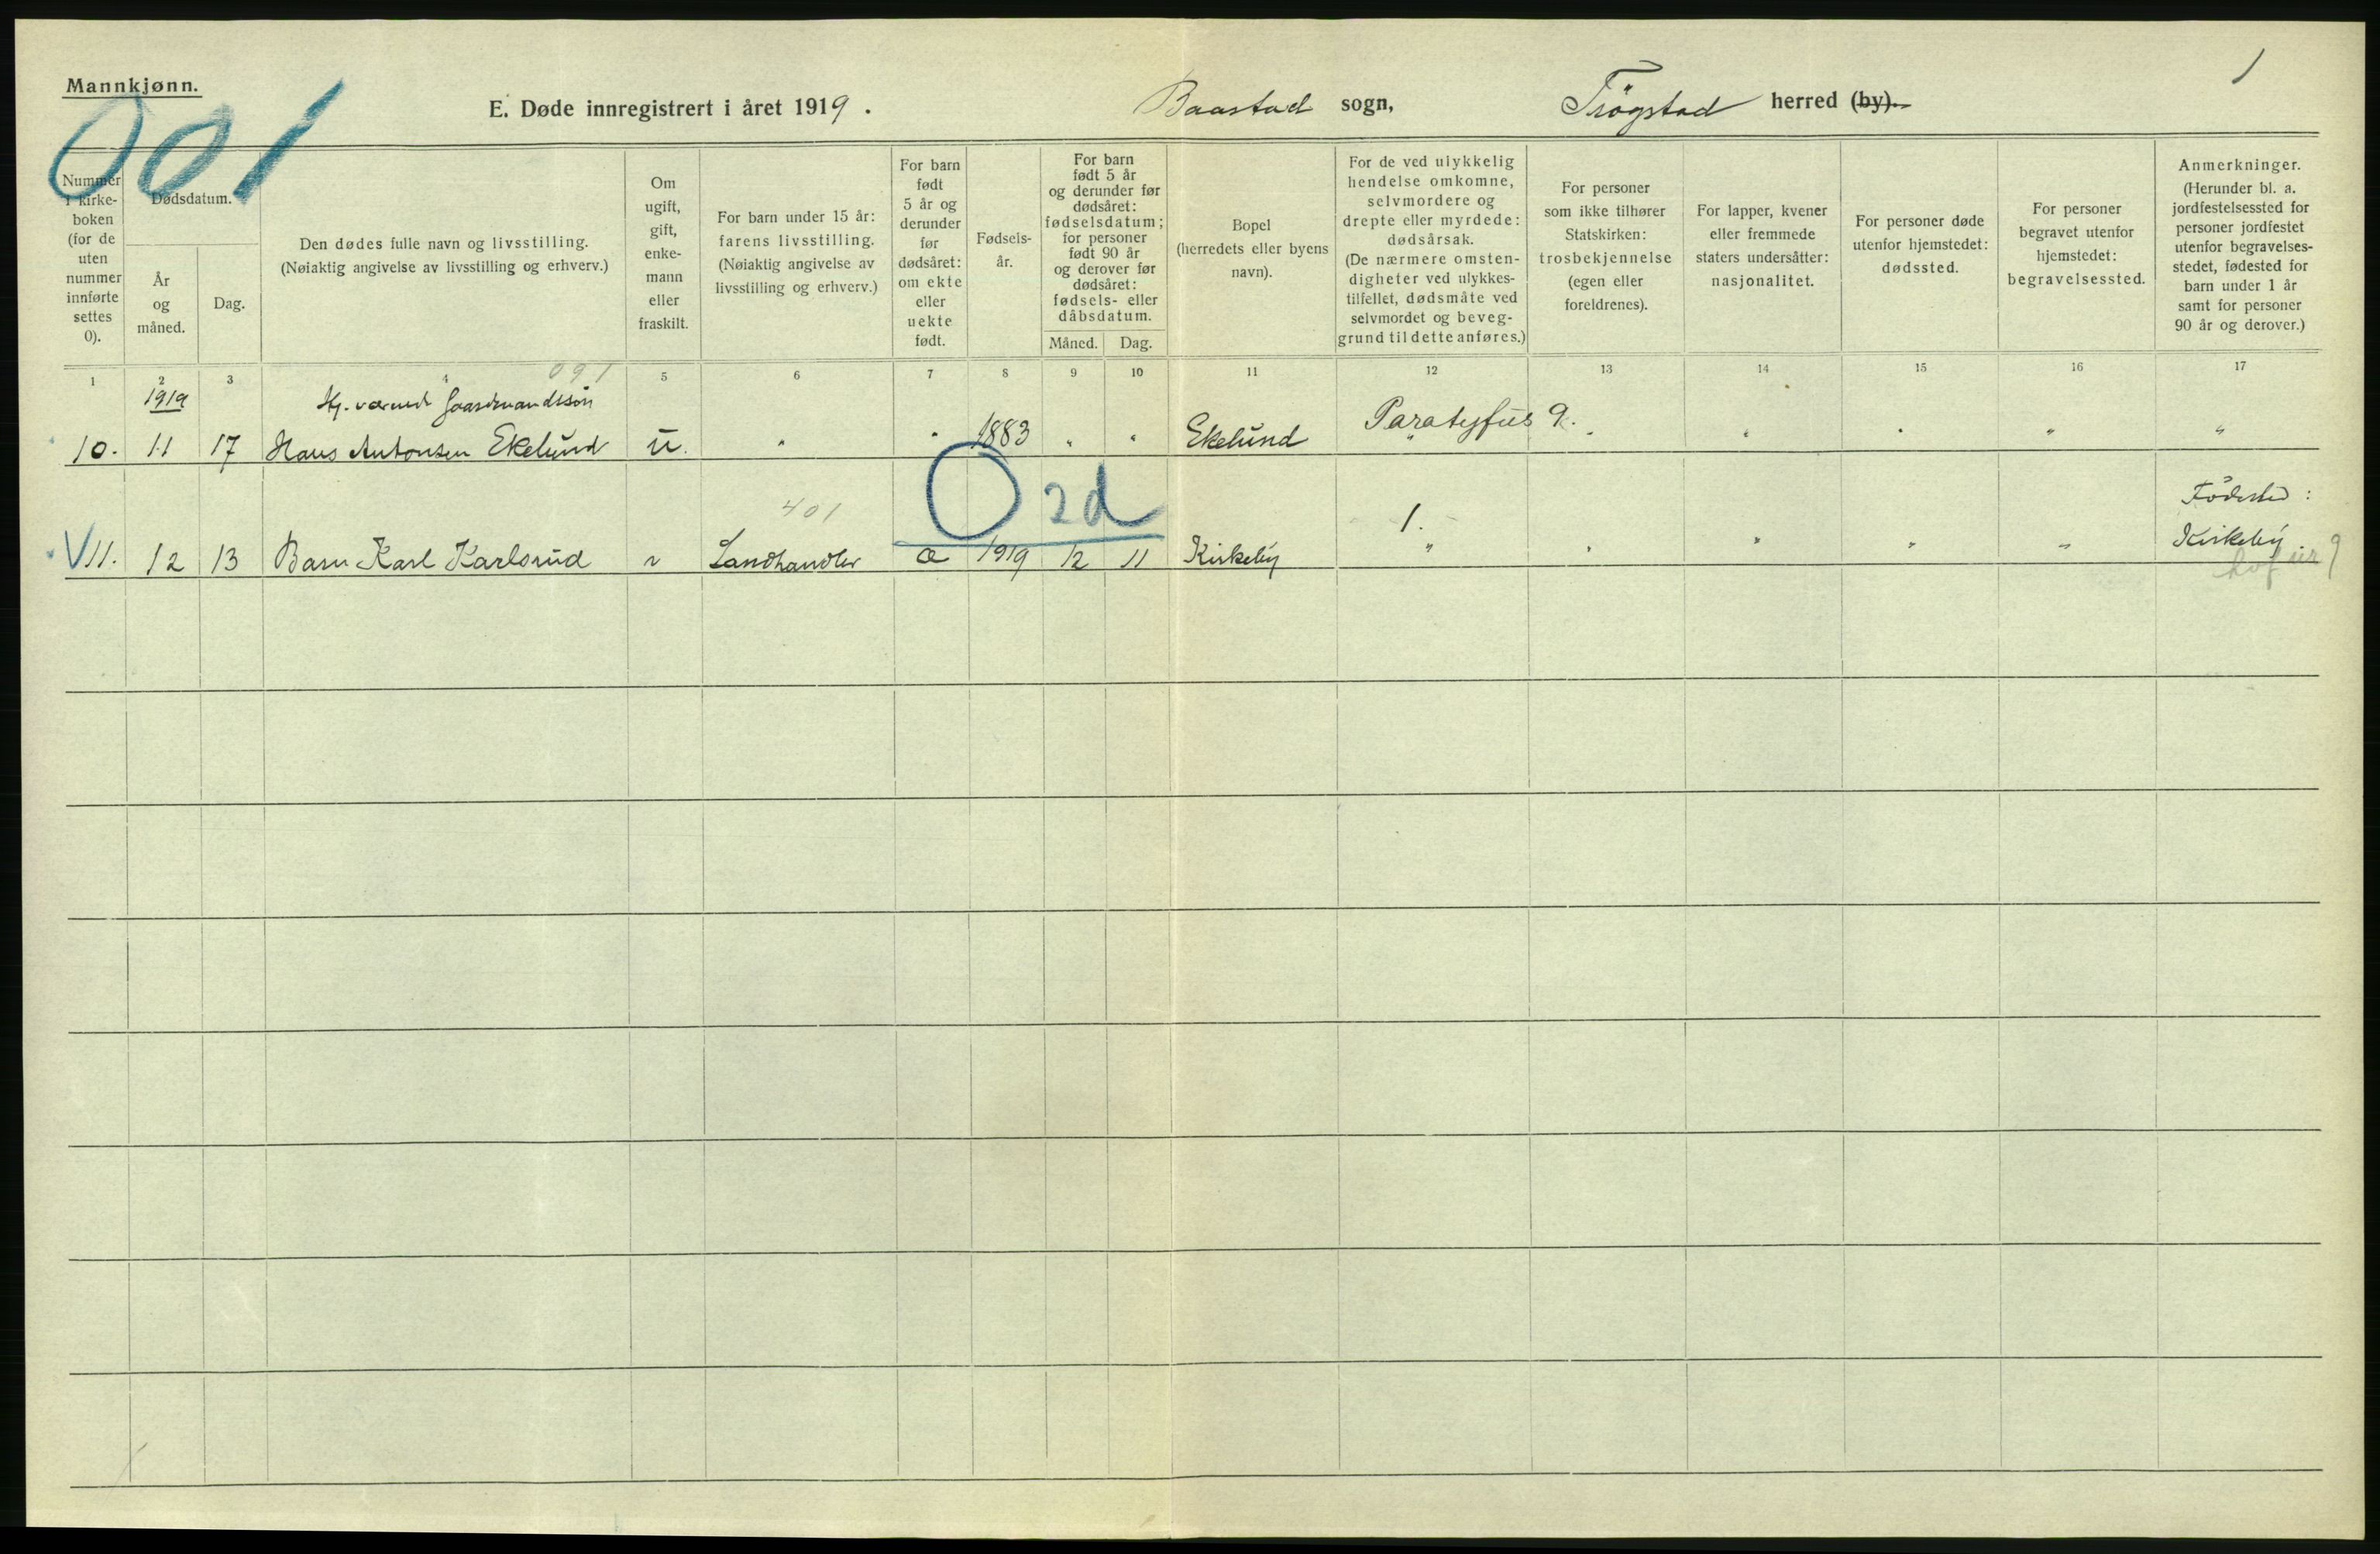 Mannkjønn.
001
1
E. Døde innregistrert i året 1919.
Baastad sogn, Trøgstad herred (by).
Nummer i kirke-
boken
(for de
uten
nummer
innførte
settes
0).
Dødsdatum.
År
og
måned.
Dag.
Den dødes fulle navn og livsstilling.
(Nøiaktig angivelse av livsstilling og erhverv.)
Om
ugift,
gift,
enke-
mann
eller
fraskilt.
For barn under 15 år:
farens livsstilling.
(Nøiaktig angivelse av
livsstilling og erhverv.)
For barn
født
5 år og
derunder
før
dødsåret:
om ekte
eller
uekte
født.
Fødsels-
år.
For barn
født 5 år
og derunder før
dødsåret:
fødselsdatum;
for personer
født 90 år
og derover før
dødsåret:
fødsels- eller
dåbsdatum.
Måned.
Dag.
Bopel
(herredets eller byens
navn).
For de ved ulykkelig
hendelse omkomne,
selvmordere og
drepte eller myrdede:
dødsårsak.
(De nærmere omsten-
digheter ved ulykkes-
tilfellet, dødsmåte ved
selvmordet og beveg-
grund til dette anføres.)
For personer
som ikke tilhører
Statskirken:
trosbekjennelse
(egen eller
foreldrenes).
For lapper, kvener
eller fremmede
staters undersåtter:
nasjonalitet.
For personer døde
utenfor hjemstedet:
dødssted.
For personer
begravet utenfor
hjemstedet:
begravelsessted.
Anmerkninger.
(Herunder bl. a.
jordfestelsessted for
personer jordfestet
utenfor begravelses-
stedet, fødested for
barn under 1 år
samt for personer
90 år og derover.)
1 2 3 4 5 6 7 8 9 10 11 12 13 14 15 16 17
091
1919 Hj. værende Gaardmandssøn
10. 11 17 Hans Antonsen Ekelund u. " " 1883 " " Ekelund Paratyfus 9. " " " " " "
401 0 2d 1. Fødested:
V 11. 12 13 Barn Karl Karlsrud Landhandler 1919 12 11 Kirkeby " " " " " Kirkeby.